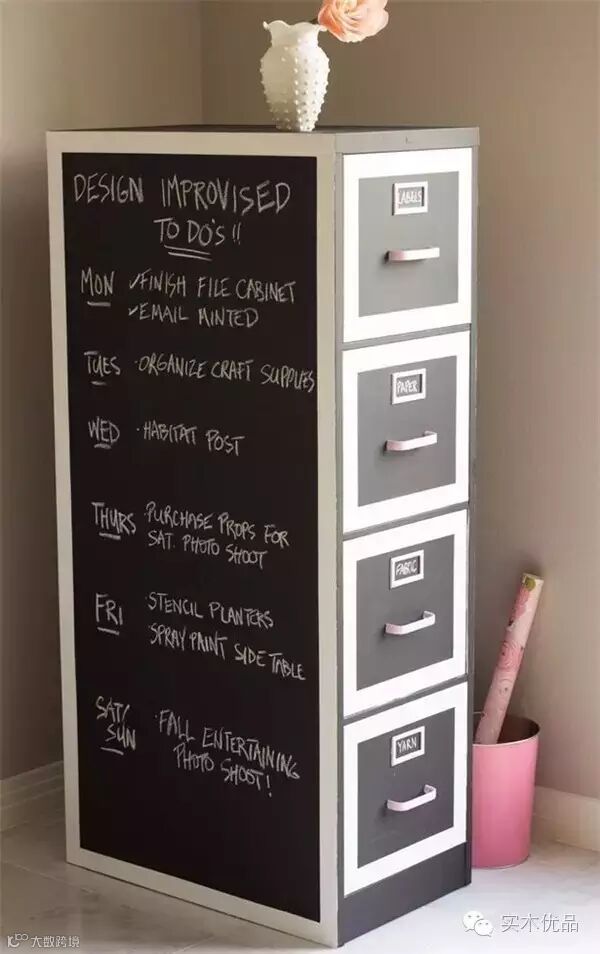 DESIGN IMPROVISED
TO DO'S!!
MON ✓FINISH FILE CABINET
✓EMAIL MINTED
TUES ·ORGANIZE CRAFT SUPPLIES
WED ·HABITAT POST
THURS ·PURCHASE PROPS FOR
SAT. PHOTO SHOOT
FRI ·STENCIL PLANTERS
·SPRAY PAINT SIDE TABLE
SAT/
SUN ·FALL ENTERTAINING
PHOTO SHOOT!
LABELS
PAPER
FABRIC
YARN
实木优品
大数跨境